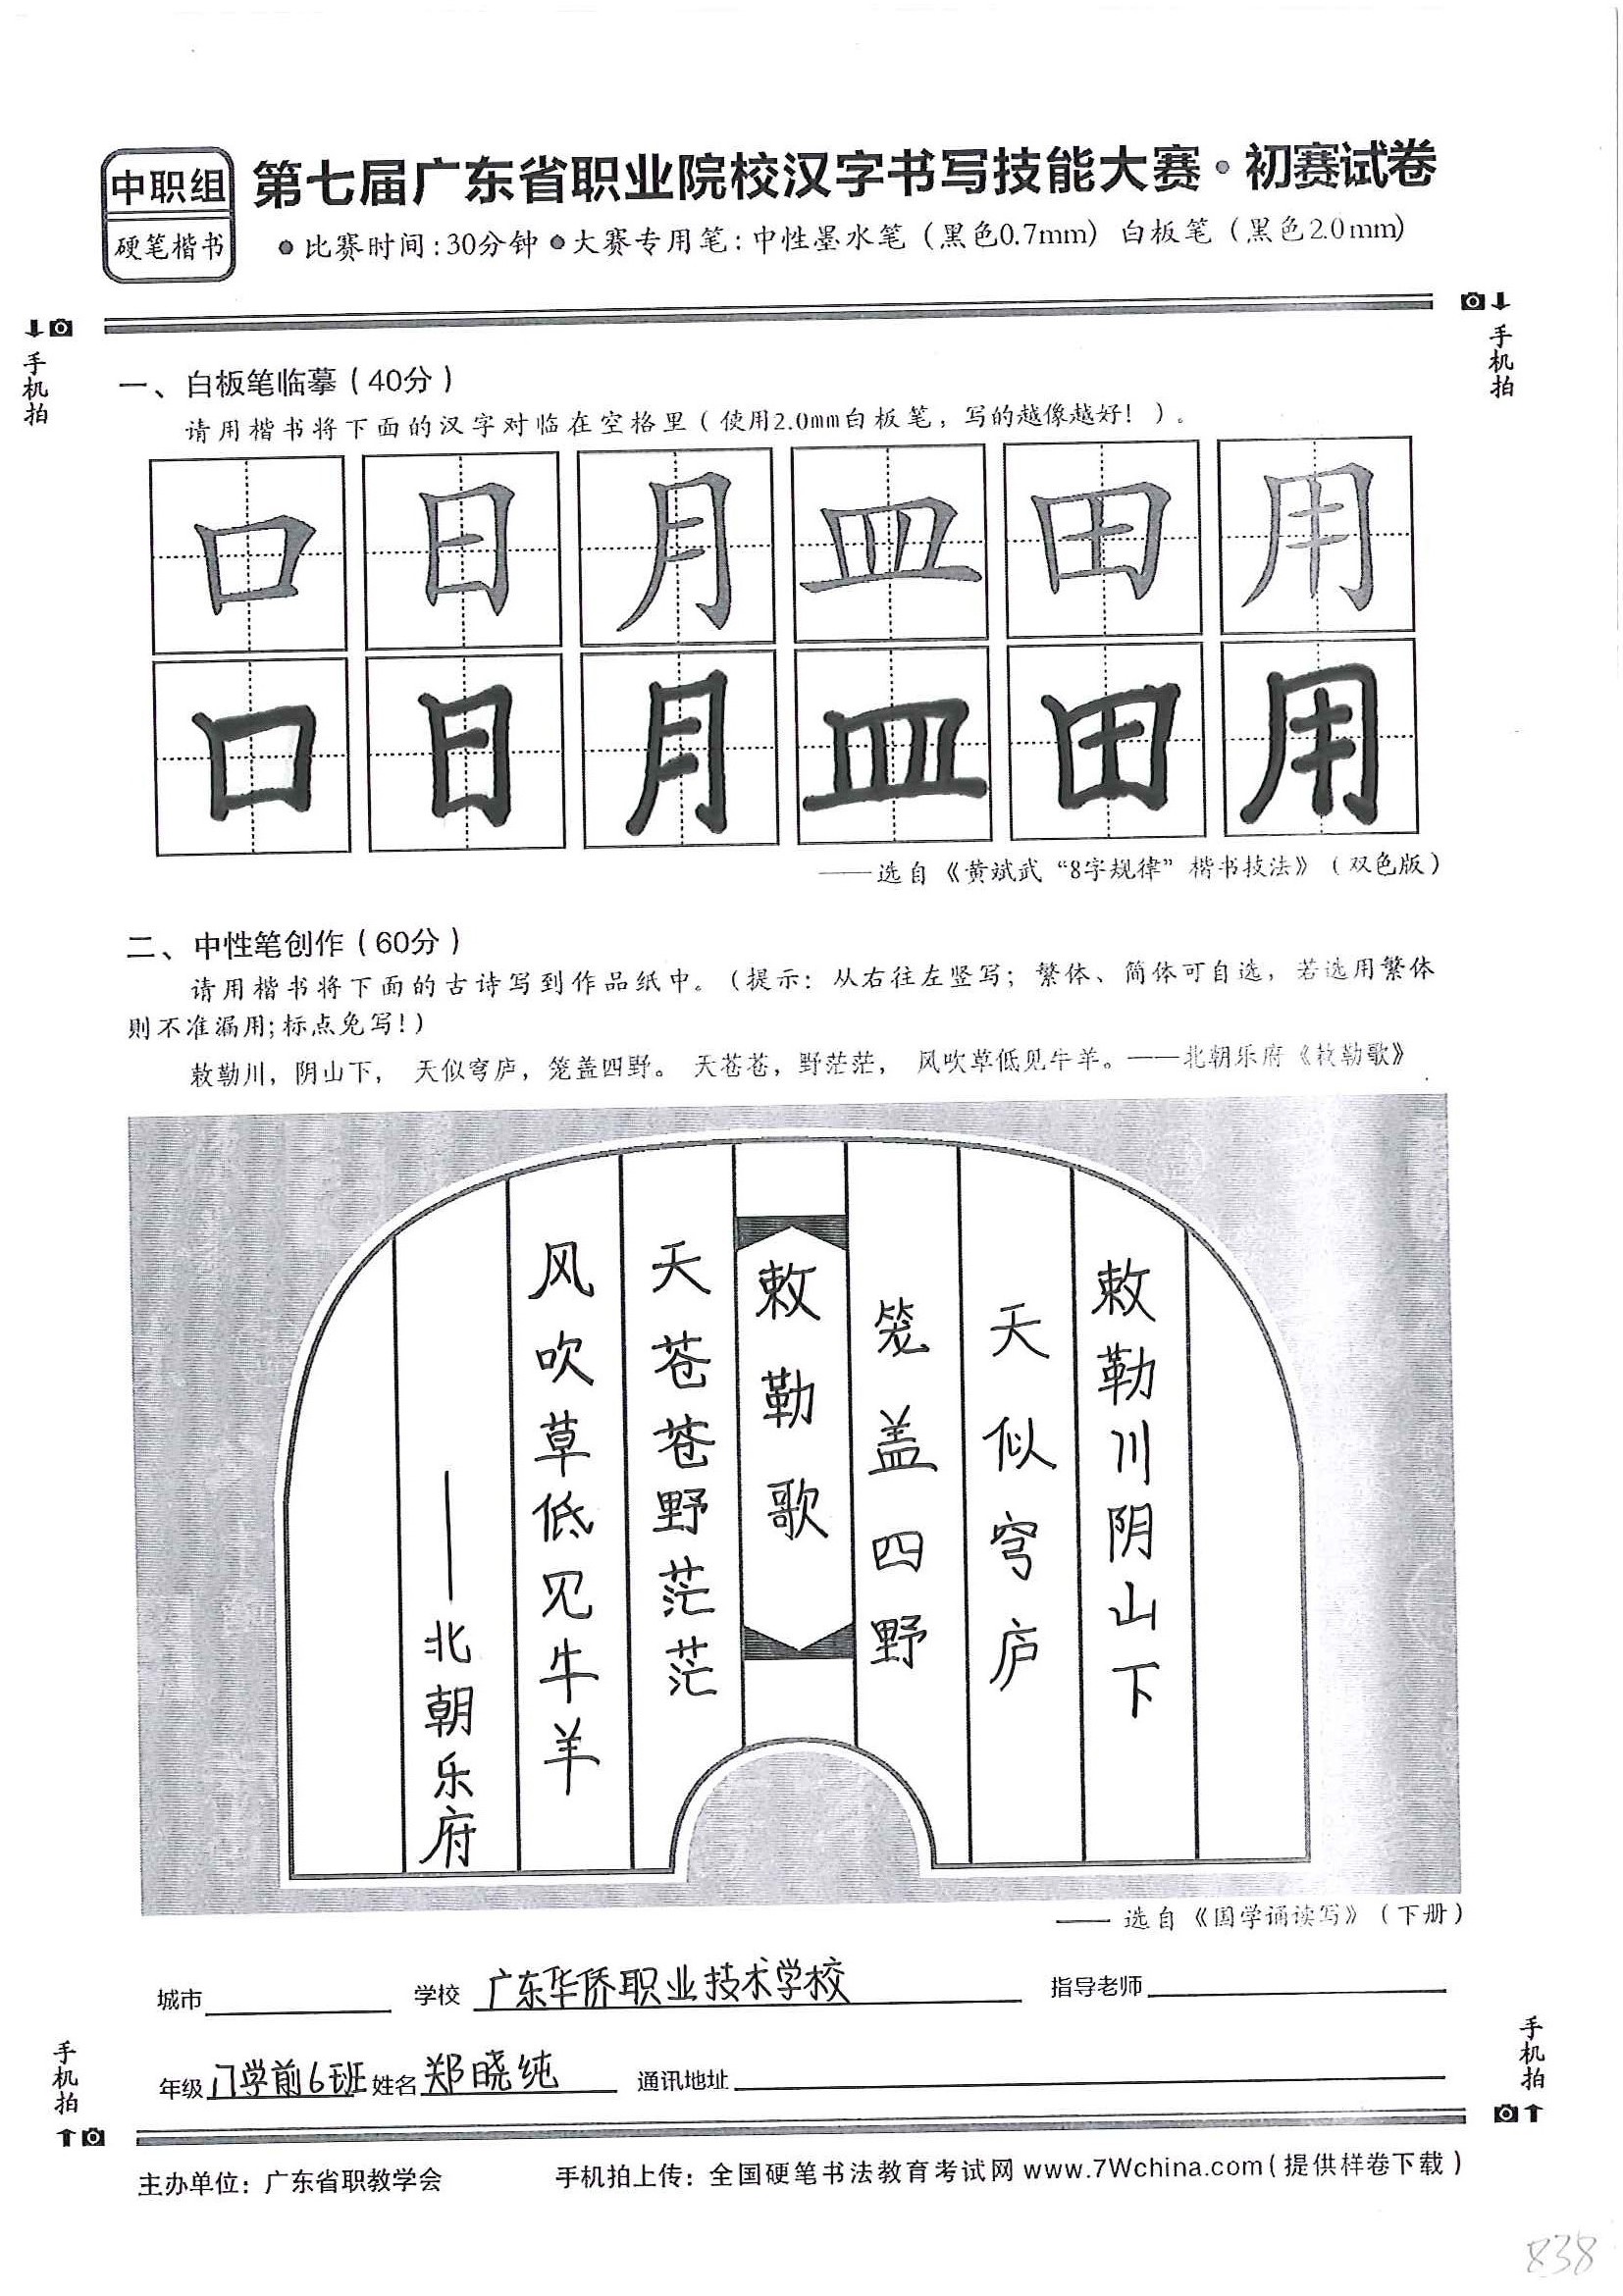 中职组
硬笔楷书
第七届广东省职业院校汉字书写技能大赛·初赛试卷
●比赛时间:30分钟 ●大赛专用笔:中性墨水笔（黑色0.7mm）白板笔（黑色2.0mm）
手机拍
手机拍
一、白板笔临摹（40分）
请用楷书将下面的汉字对临在空格里（使用2.0mm白板笔，写的越像越好！）。
口 日 月 皿 田 用
口 日 月 皿 田 用
——选自《黄斌武“8字规律”楷书技法》（双色版）
二、中性笔创作（60分）
请用楷书将下面的古诗写到作品纸中。（提示：从右往左竖写；繁体、简体可自选，若选用繁体
则不准漏用;标点免写!）
敕勒川，阴山下， 天似穹庐，笼盖四野。 天苍苍，野茫茫， 风吹草低见牛羊。——北朝乐府《敕勒歌》
敕勒川阴山下
天似穹庐
笼盖四野
敕勒歌
天苍苍野茫茫
风吹草低见牛羊
——北朝乐府
—— 选自《国学诵读写》（下册）
城市 学校 广东华侨职业技术学校 指导老师
年级 学前6班 姓名 郑晓纯 通讯地址
手机拍
手机拍
主办单位：广东省职教学会 手机拍上传：全国硬笔书法教育考试网 www.7Wchina.com（提供样卷下载）
838